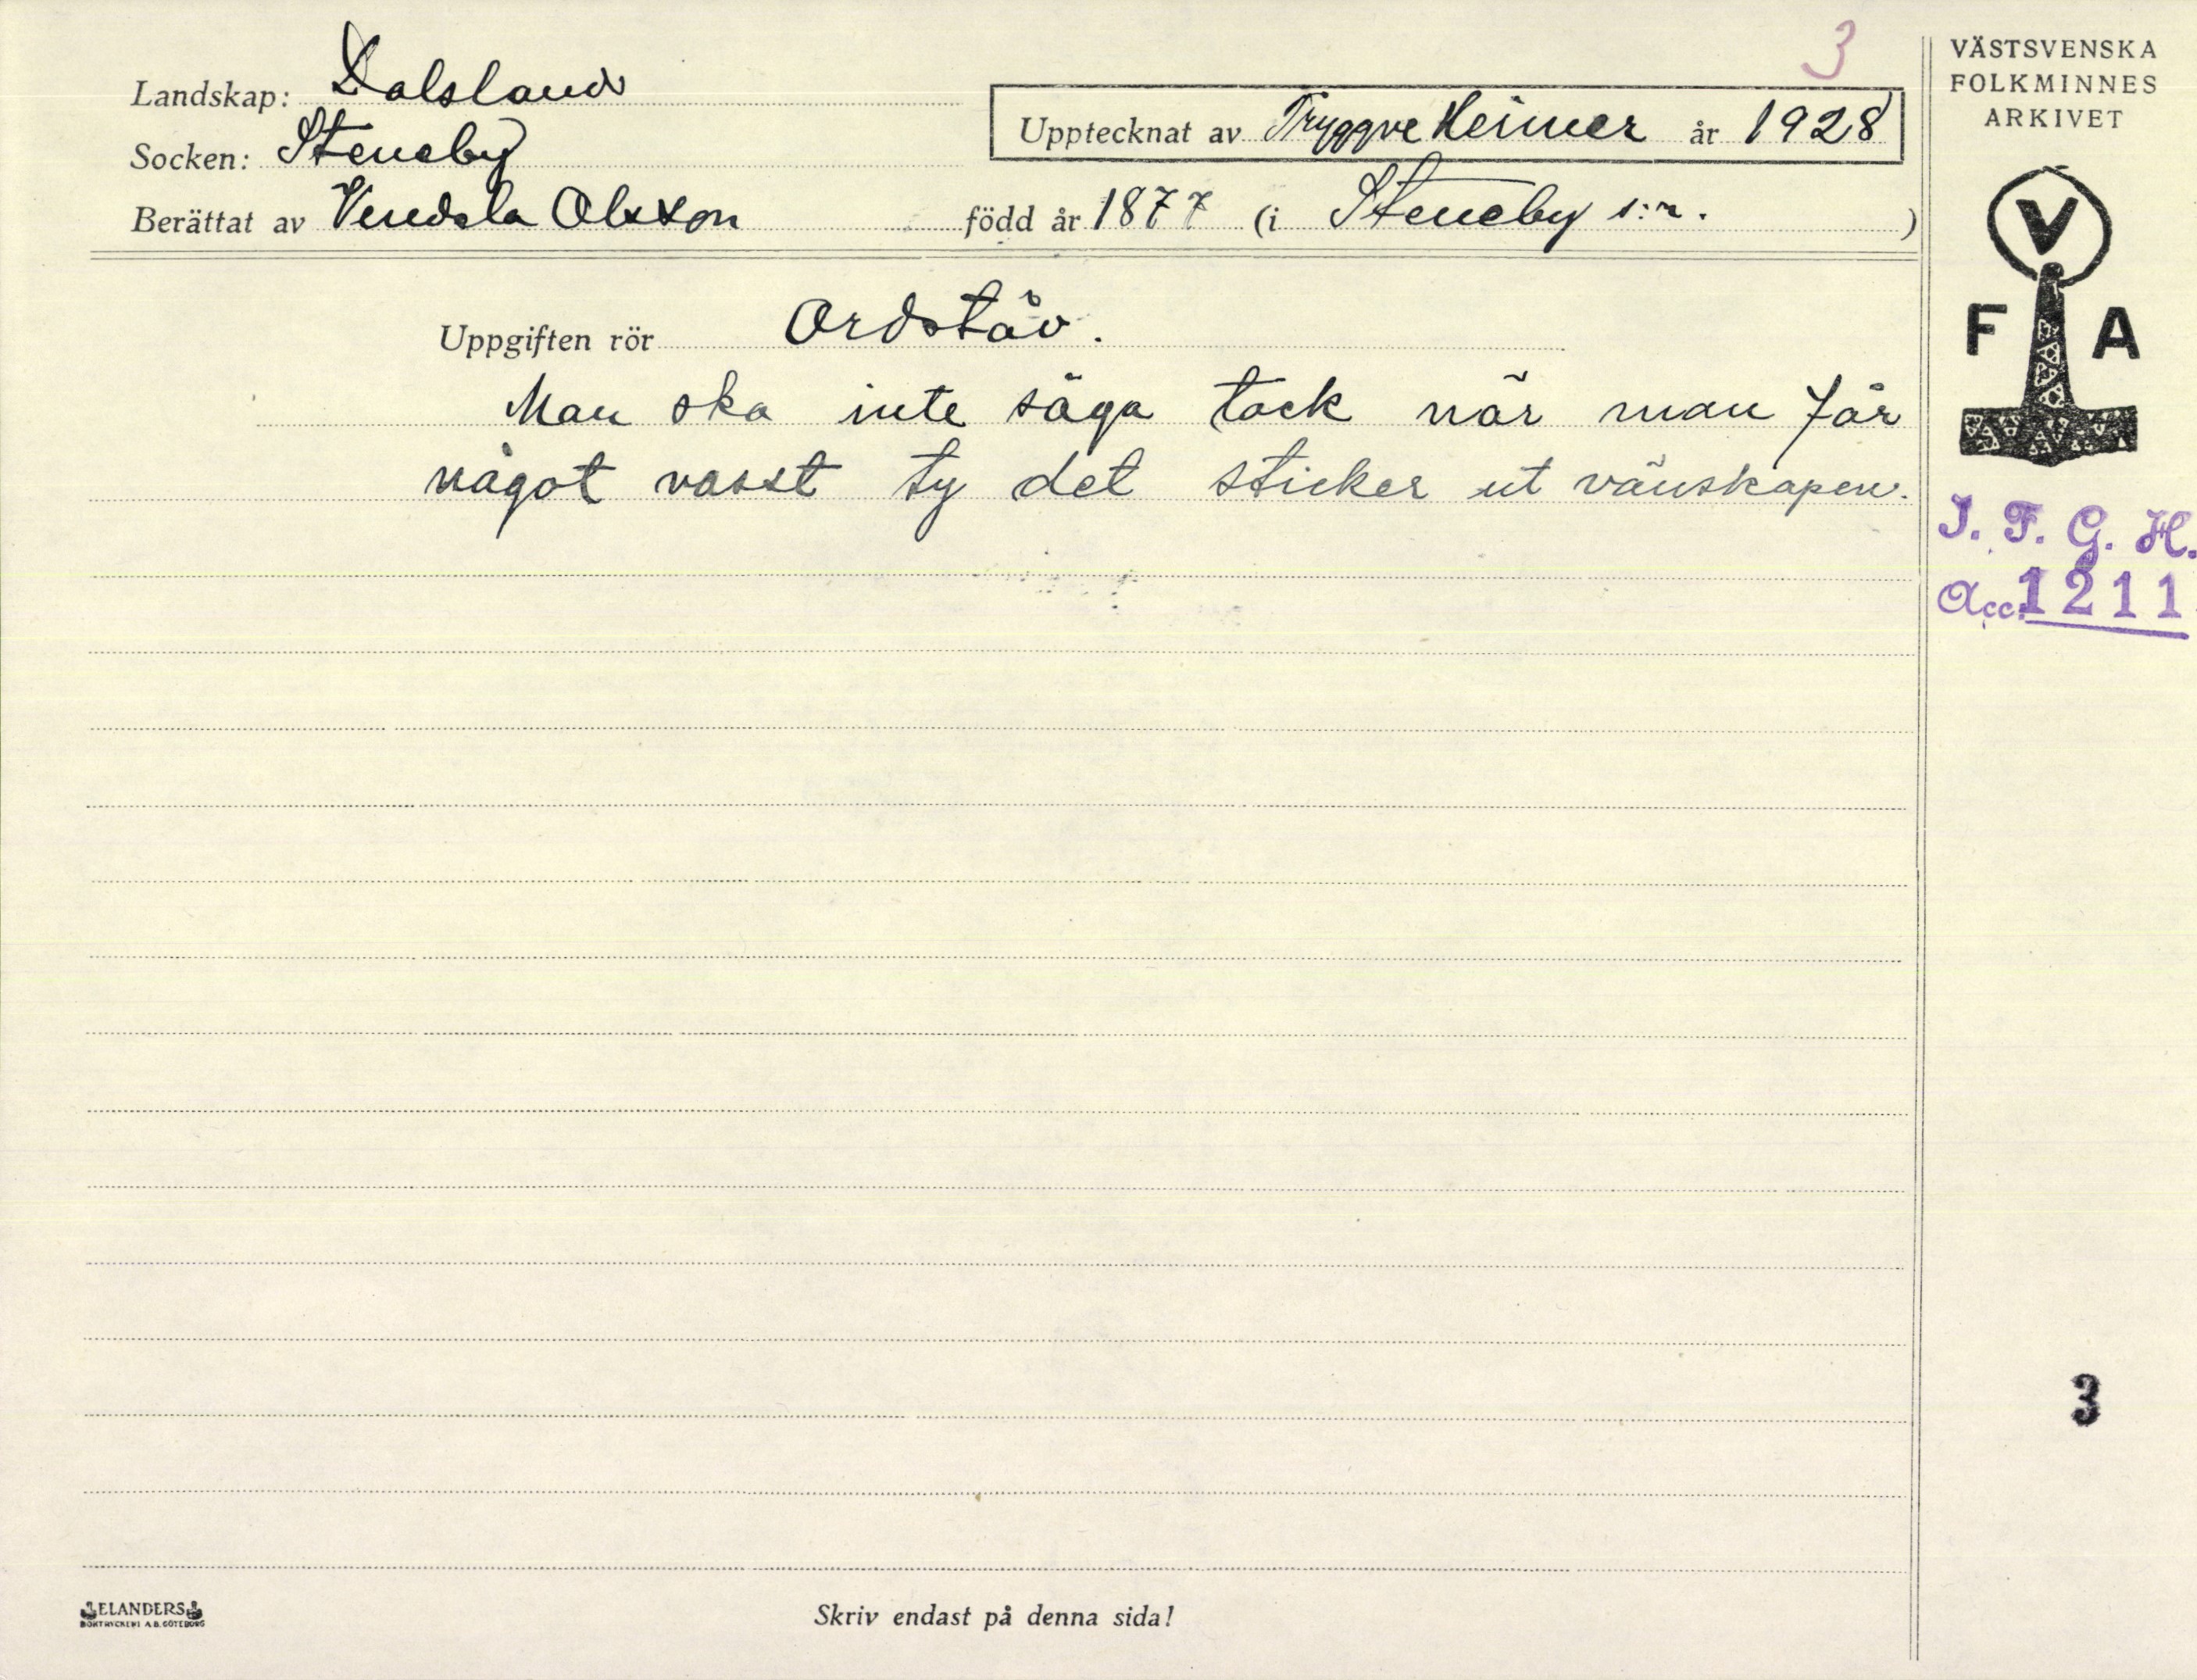 3
Landskap: Dalsland
Upptecknat av Tryggve Heimer år 1928
Socken: Steneby
Berättat av Vendela Olsson född år 1877 (i Steneby s:n. )
Uppgiften rör Ordstäv.
Man ska inte säga tack när man får
något vasst ty det sticker ut vänskapen.
VÄSTSVENSKA
FOLKMINNES
ARKIVET
V
F A
I. F. G. H.
Acc. 1211
3
ELANDERS
BOKTRYCKERI A.B. GÖTEBORG
Skriv endast på denna sida!